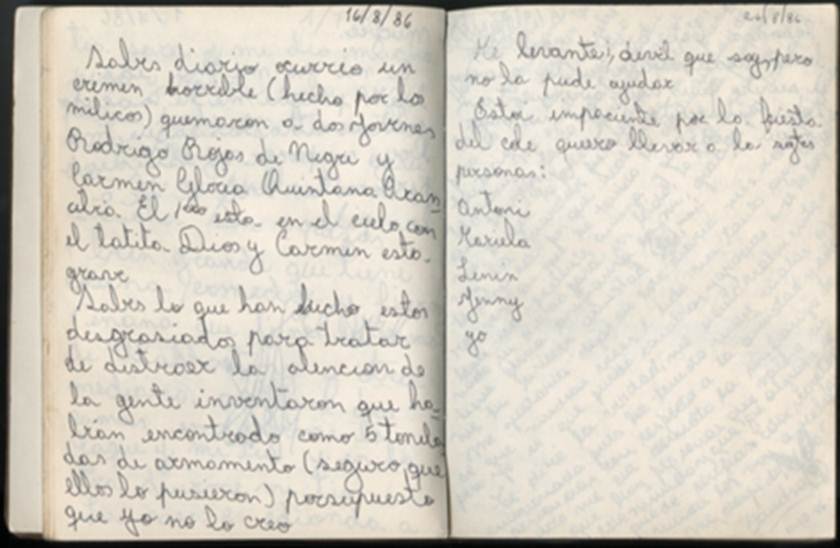 16/8/86
Sabes diario ocurrio un
crimen horrible (hecho por los
milicos) quemaron a dos jovenes
Rodrigo Rojas de Negri y
Carmen Gloria Quintana Aran_
cibia. El 1ero esta en el cielo con
el tatita Dios y Carmen esta
grave
Sabes lo que han hecho estos
desgrasiados para tratar
de distraer la atencion de
la gente inventaron que ha_
brian encontrado como 5 tonela
das de armamento (seguro que
ellos lo pusieron) porsupuesto
que yo no lo creo
Me levante!, devil que soy, pero
no la pude ayudar
Estoi impaciente por la fiesta
del cole quiero llevar a la sgtes
personas:
Antoni
Mariela
Lenin
Jenny
yo